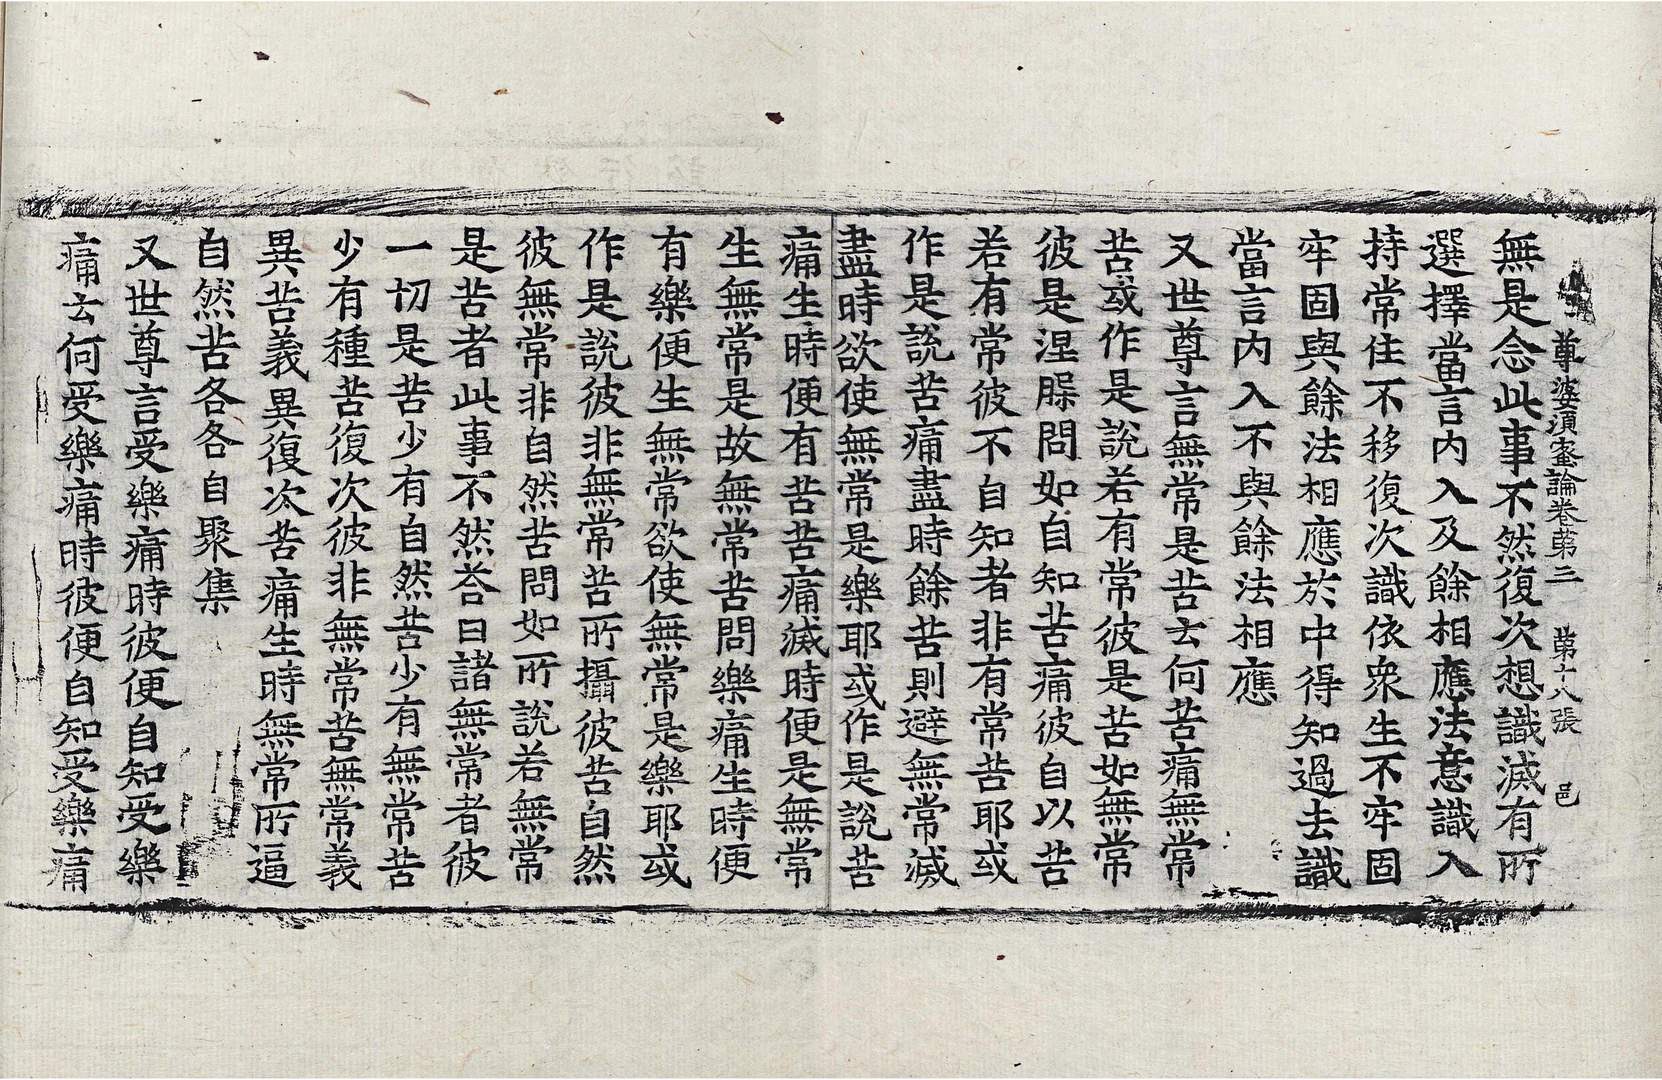 尊婆須蜜論卷第三 第十八張 邑
無是念此事不然復次想識滅有所
選擇當言內入及餘相應法意識入
持常住不移復次識依衆生不牢固
牢固與餘法相應於中得知過去識
當言內入不與餘法相應
又世尊言無常是苦云何苦痛無常
苦或作是說若有常彼是苦如無常
彼是涅槃問如自知苦痛彼自以苦
若有常彼不自知者非有常苦耶或
作是說苦痛盡時餘苦則避無常滅
盡時欲使無常是樂耶或作是說苦
痛生時便有苦苦痛滅時便是無常
生無常是故無常苦問樂痛生時便
有樂便生無常欲使無常是樂耶或
作是說彼非無常苦所攝彼苦自然
彼無常非自然苦問如所說若無常
是苦者此事不然荅曰諸無常者彼
一切是苦少有自然苦少有無常苦
少有種苦復次彼非無常苦無常義
異苦義異復次苦痛生時無常所逼
自然苦各各自聚集
又世尊言受樂痛時彼便自知受樂
痛云何受樂痛時彼便自知受樂痛